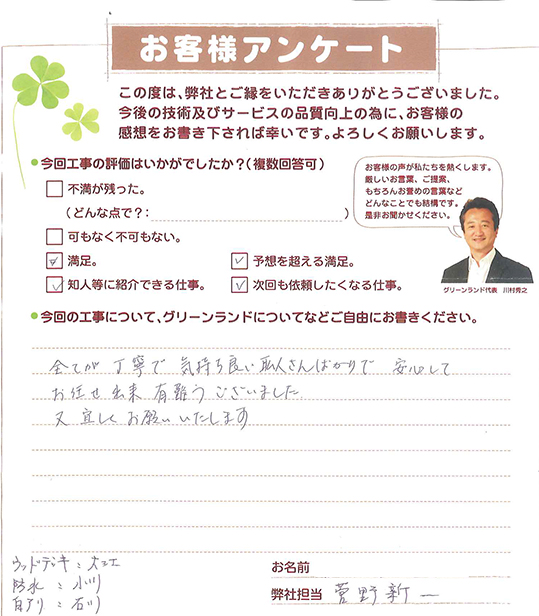 お客様アンケート
この度は、弊社とご縁をいただきありがとうございました。
今後の技術及びサービスの品質向上の為に、お客様の
感想をお書き下されば幸いです。よろしくお願いします。
●今回工事の評価はいかがでしたか?(複数回答可)
不満が残った。
(どんな点で?: )
可もなく不可もない。
満足。
予想を超える満足。
知人等に紹介できる仕事。
次回も依頼したくなる仕事。
お客様の声が私たちを熱くします。
厳しいお言葉、ご提案、
もちろんお誉めの言葉など
どんなことでも結構です。
是非お聞かせください。
グリーンランド代表 川村秀之
●今回の工事について、グリーンランドについてなどご自由にお書きください。
全てが 丁寧で 気持ち良い職人さんばかりで 安心して
お任せ出来 有難うございました
又 宜しくお願いいたします
ウッドデッキ:大工
防水:小川
白アリ:石川
お名前
弊社担当 菅野新一